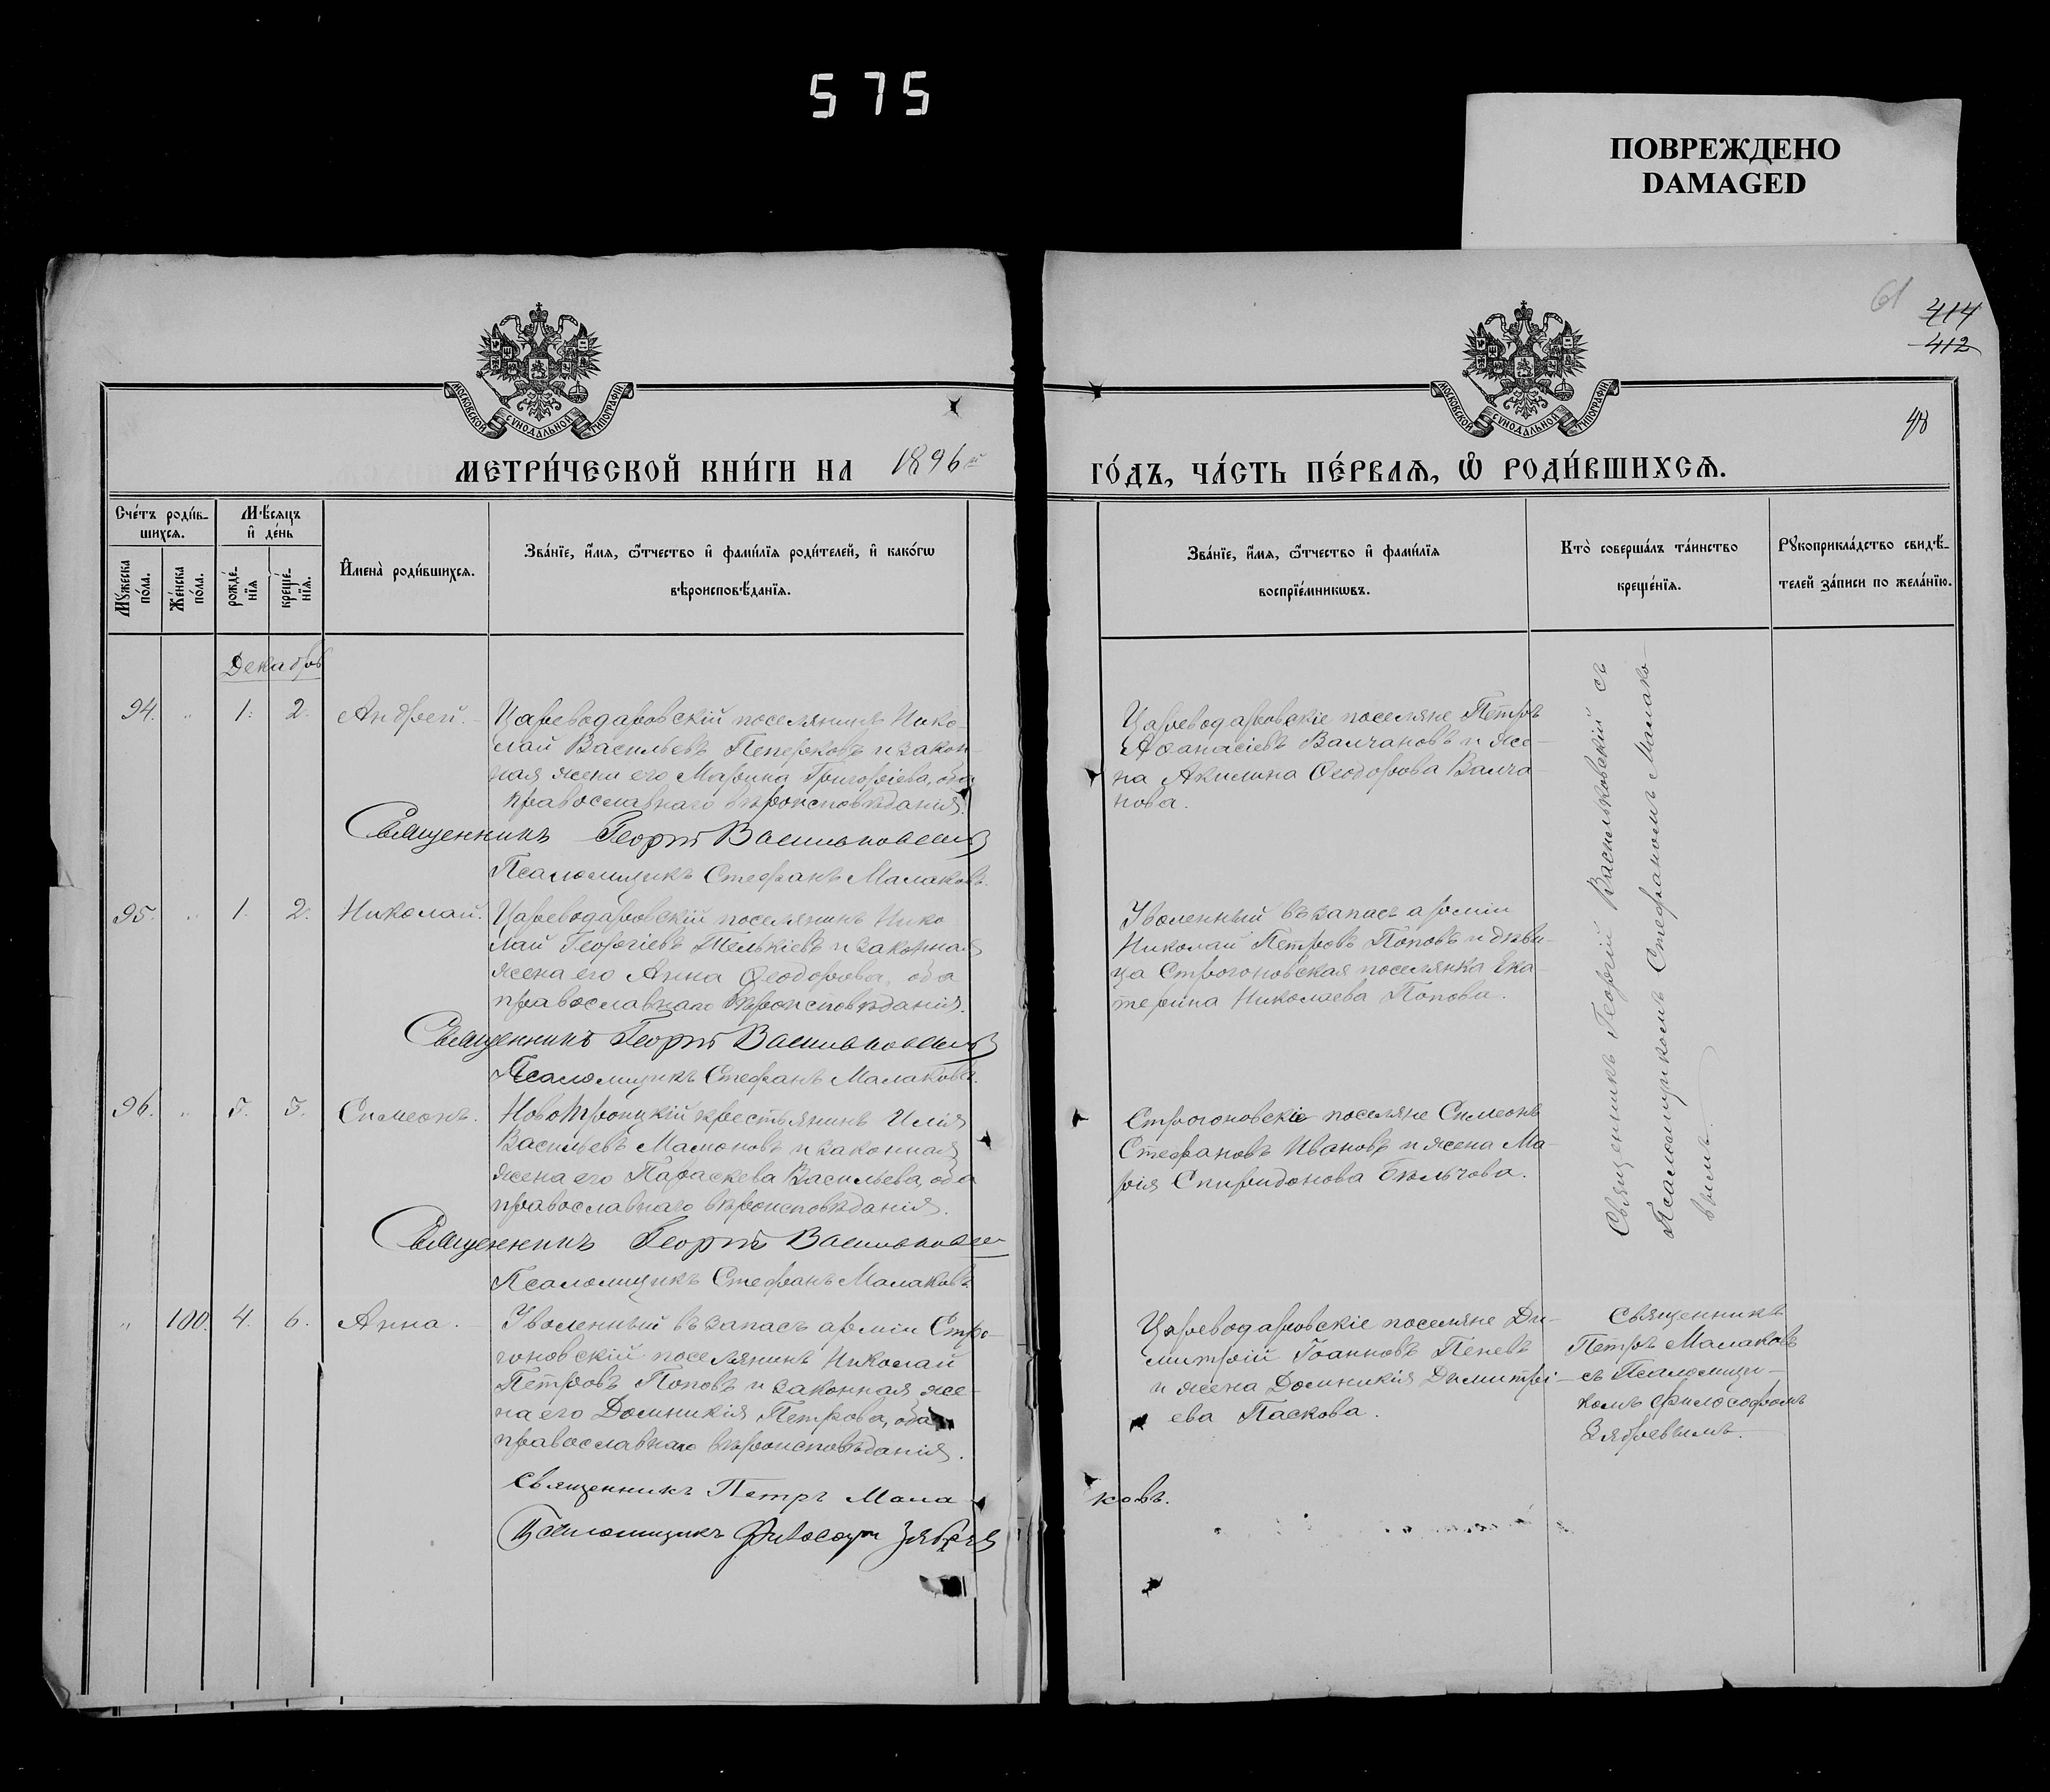 575
ПОВРЕЖДЕНО
DAMAGED
61
414
412
48
МОСКОВСКОЙ СѴНОДАЛЬНОЙ ТИПОГРАФІИ
МОСКОВСКОЙ СѴНОДАЛЬНОЙ ТИПОГРАФІИ
МЕТРИ́ЧЕСКОЙ КНИ́ГИ НА 1896й ГО́ДЪ, ЧА́СТЬ ПЕ́РВАѦ, Ѡ҆ РОДИ́ВШИХСѦ.
Сче́тъ роди́в-
шихсѧ.
Мѣ́сѧцъ
и҆ де́нь
Мꙋ́жеска по́ла.
Же́нска по́ла.
рожде́-
нїѧ
креще́-
нїѧ.
И҆мена̀ роди́вшихсѧ.
Зва́нїе, и҆́мѧ, ѻ҆́тчество и҆ фами́лїѧ роди́телей, и҆ како́гѡ
вѣроисповѣ́данїѧ.
Зва́нїе, и҆́мѧ, ѻ҆́тчество и҆ фами́лїѧ
воспрїе́мникѡвъ.
Кто̀ соверша́лъ та́инство
креще́нїѧ.
Рꙋкоприкла́дство свидѣ́-
телей за́писи по жела́нїю.
Декабрь
94. " 1. 2. Андрей.
Цареводаровскій поселянинъ Нико-
лай Васильевъ Пеперковъ и закон-
ная жена его Марина Григоріева, оба
православнаго вѣроисповѣданія.
Священникъ Георгій Васильковскій
Псаломщикъ Стефанъ Малаковъ.
Цареводаровскіе поселяне Петръ
Аѳанасіевъ Валчановъ и же-
на Акилина Ѳеодорова Валча-
нова.
95. " 1. 2. Николай.
Цареводаровскій поселянинъ Нико
лай Георгіевъ Телькіевъ и законная
жена его Анна Ѳеодорова, оба
православнаго вѣроисповѣданія.
Священникъ Георгій Васильковскій
Псаломщикъ Стефанъ Малаковъ.
Уволенный въ запасъ арміи
Николай Петровъ Поповъ и дѣви-
ца Строгоновская поселянка Ека-
терина Николаева Попова.
96. " 5. 5. Симеонъ.
Новотроицкій крестьянинъ Илія
Васильевъ Мамоновъ и законная
жена его Параскева Васильева, оба
православнаго вѣроисповѣданія.
Священникъ Георгій Васильковскій
Псаломщикъ Стефанъ Малаковъ
Строгоновскіе поселяне Симеонъ
Стефановъ Ивановъ и жена Ма-
рія Спиридонова Бѣльчова.
Священникъ Георгій Васильковскій съ
Псаломщикомъ Стефаномъ Малако-
вымъ.
" 100. 4. 6. Анна.
Уволенный въ запасъ арміи Стро-
гоновскій поселянинъ Николай
Петровъ Поповъ и законная же-
на его Домникія Петрова, оба
православнаго вѣроисповѣданія.
Священникъ Петръ Мала
ковъ.
Псаломщикъ Философъ Зябревъ
Цареводаровскіе поселяне Ди-
митрій Іоанновъ Пеневъ
и жена Домникія Димитрі-
ева Паскова.
Священникъ
Петръ Малаковъ
съ Псаломщи-
комъ Философомъ
Зябревымъ.